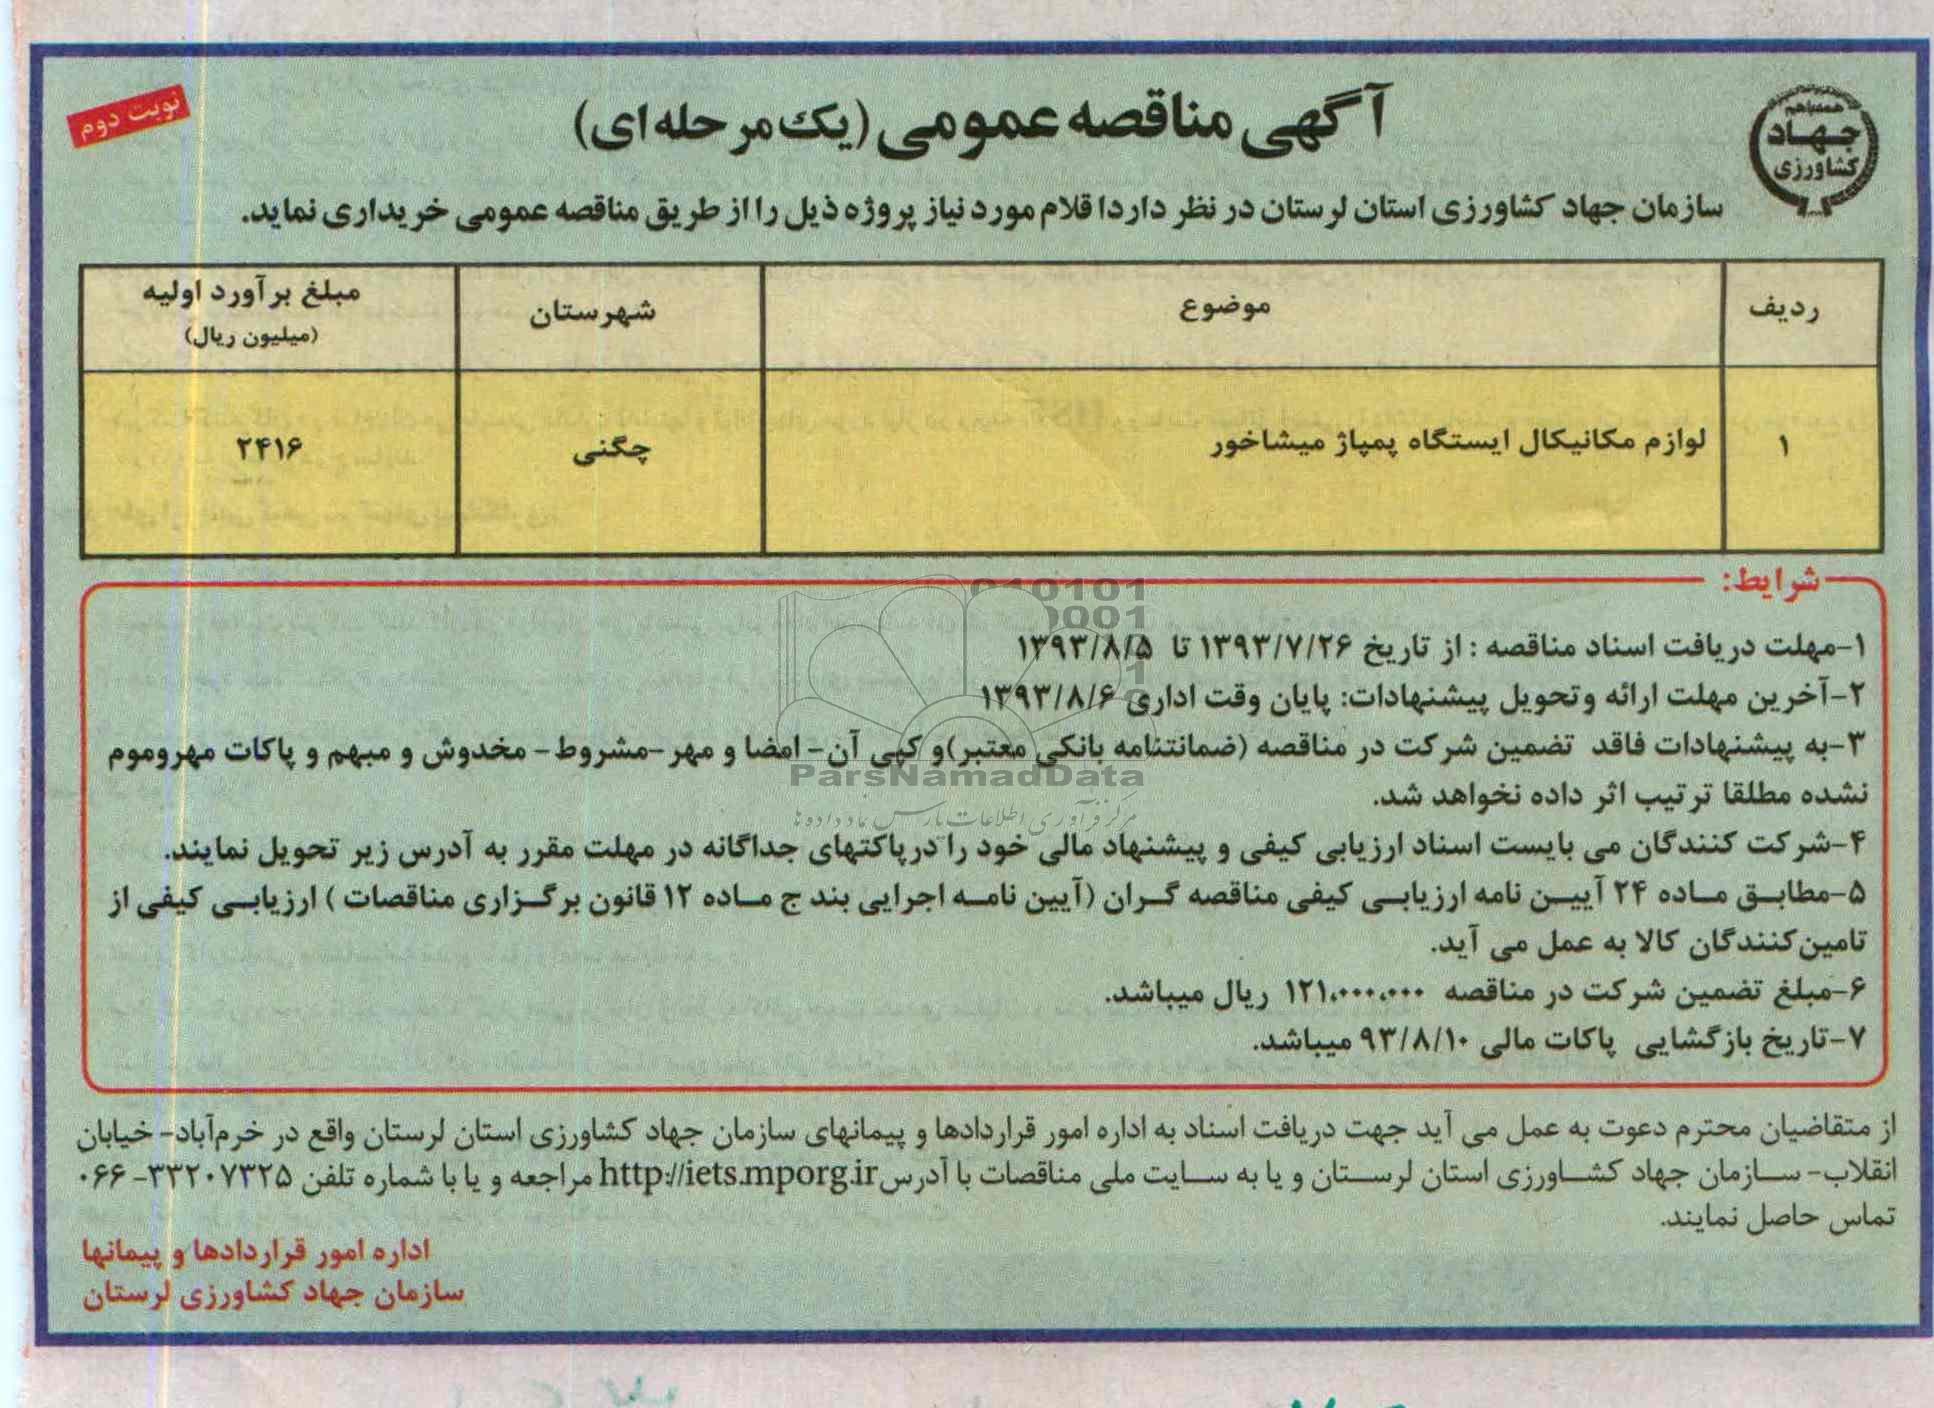 همراهم
جهاد
کشاورزی
نوبت دوم
آگهی مناقصه عمومی (یک مرحله ای)
سازمان جهاد کشاورزی استان لرستان در نظر دارد اقلام مورد نیاز پروژه ذیل را از طریق مناقصه عمومی خریداری نماید.
ردیف موضوع شهرستان مبلغ برآورد اولیه
(میلیون ریال)
۱ لوازم مکانیکال ایستگاه پمپاژ میشاخور چگنی ۲۴۱۶
شرایط:
۱-مهلت دریافت اسناد مناقصه : از تاریخ ۱۳۹۳/۷/۲۶ تا ۱۳۹۳/۸/۵
۲-آخرین مهلت ارائه وتحویل پیشنهادات: پایان وقت اداری ۱۳۹۳/۸/۶
۳-به پیشنهادات فاقد تضمین شرکت در مناقصه (ضمانتنامه بانکی معتبر)و کپی آن- امضا و مهر-مشروط- مخدوش و مبهم و پاکات مهروموم
نشده مطلقا ترتیب اثر داده نخواهد شد.
۴-شرکت کنندگان می بایست اسناد ارزیابی کیفی و پیشنهاد مالی خود را درپاکتهای جداگانه در مهلت مقرر به آدرس زیر تحویل نمایند.
۵-مطابق ماده ۲۴ آیین نامه ارزیابی کیفی مناقصه گران (آیین نامه اجرایی بند ج ماده ۱۲ قانون برگزاری مناقصات ) ارزیابی کیفی از
تامین کنندگان کالا به عمل می آید.
۶-مبلغ تضمین شرکت در مناقصه ۱۲۱،۰۰۰،۰۰۰ ریال میباشد.
۷-تاریخ بازگشایی پاکات مالی ۹۳/۸/۱۰ میباشد.
010101
0001
ParsNamadData
مرکز فرآوری اطلاعات پارس نماد داده ها
از متقاضیان محترم دعوت به عمل می آید جهت دریافت اسناد به اداره امور قراردادها و پیمانهای سازمان جهاد کشاورزی استان لرستان واقع در خرم‌آباد- خیابان
انقلاب- سازمان جهاد کشاورزی استان لرستان و یا به سایت ملی مناقصات با آدرس http://iets.mporg.ir مراجعه و یا با شماره تلفن ۳۳۲۰۷۳۲۵-۰۶۶
تماس حاصل نمایند.
اداره امور قراردادها و پیمانها
سازمان جهاد کشاورزی لرستان